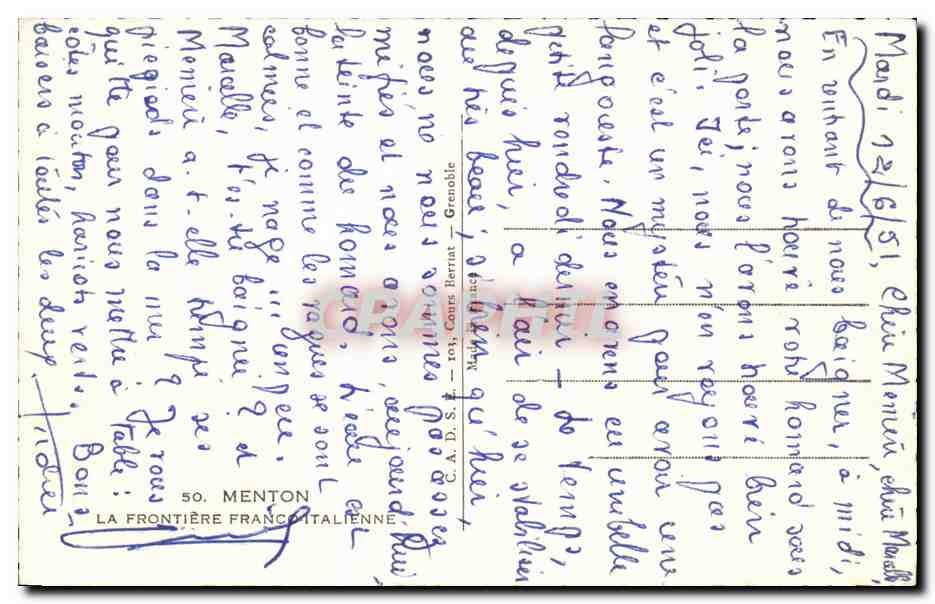 Mardi 12/6/51, Chère Mémère, chère Marcelle,
En rentrant de nous baigner, à midi,
nous avons trouvé votre homard sous
la porte; nous l'avons trouvé bien
joli. Ici, nous n'en voyons pas
et c'est un mystère pour avoir une
langouste. Nous en avons eu une belle
petite vendredi dernier – Le temps,
depuis hier, a l'air de se stabiliser
au très beau; si bien qu'hier
nous ne nous sommes pas assez
méfiés et nous avons, aujourd'hui
la teinte du homard. L'eau est
bonne et comme les vagues se sont
calmées, je nage !!! un peu.
Marcelle, t'es-tu baignée? et
Mémère a-t-elle trempé ses
pieds dans la mer? Je vous
quitte pour nous mettre à table:
côtes mouton, haricots verts. Bons
baisers à toutes les deux.
50. MENTON
LA FRONTIÈRE FRANCO-ITALIENNE
C. A. D. S. E. — 103, Cours Berriat — Grenoble
Made in France
CPAPHIL